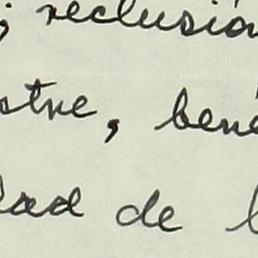 ; reclusión
stre, bené
dad de l